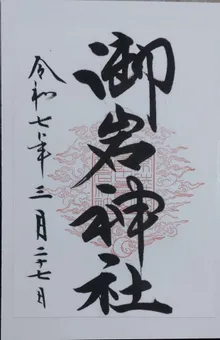 御岩神社
令和七年三月二十七日